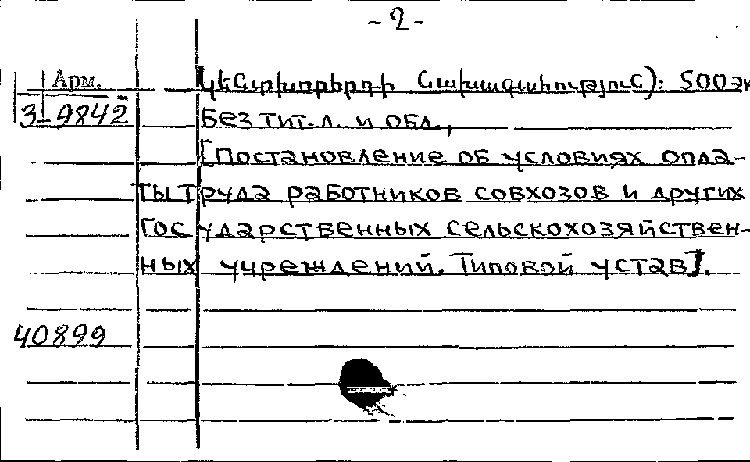 - 2 -
Арм.
3-9842
կենտկոոպերոդի նախագահություն): 500 эк
Без тит. л. и обл.,
[Постановление об условиях опла-
ты труда работников совхозов и других
государственных сельскохозяйствен-
ных учреждений. Типовой устав].
40899